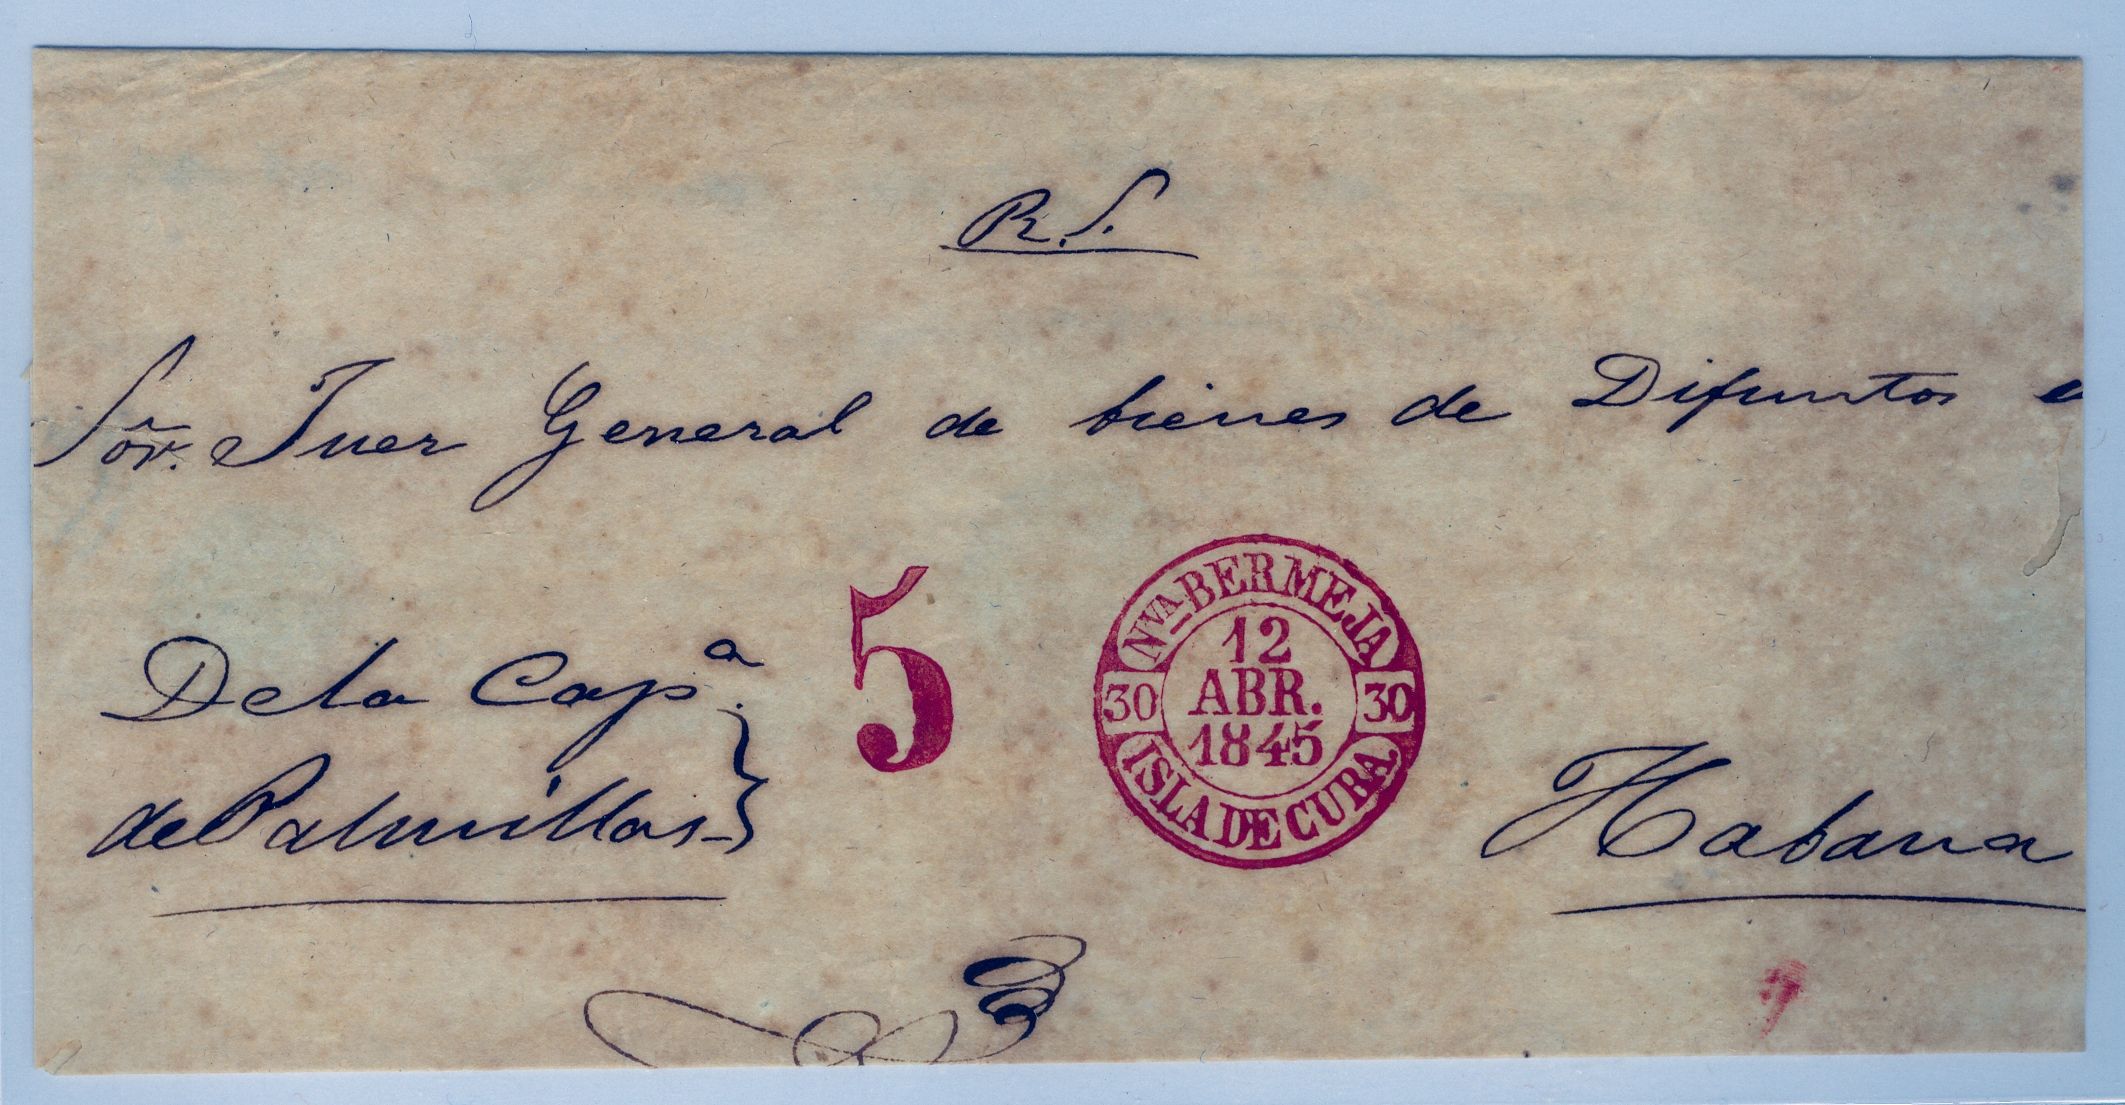 R. S.
Sõr. Juez General de bienes de Difuntos e
De la Cap.ª
de Palmillas
5
Nᵛᴬ BERMEJA
30 12 30
ABR.
1845
ISLA DE CUBA
Habana